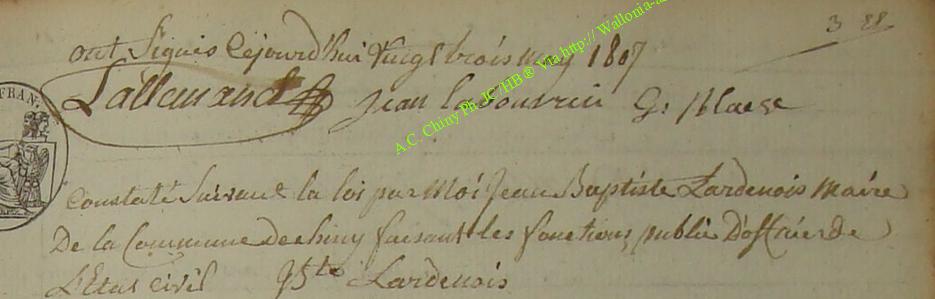 3 28
ont Signés Cejourd'hui Vingt trois may 1807
Lallemand Jean la G: Blaise
A.C. Chiny Ph. JC HB ® Via http:// Wallonia-a
FRAN.
Constaté Suivant la loi par Moi Jean Baptiste Lardenois Maire
De la Commune de chiny faisant les fonctions public D'officier de
L'Etat civil JBte Lardenois